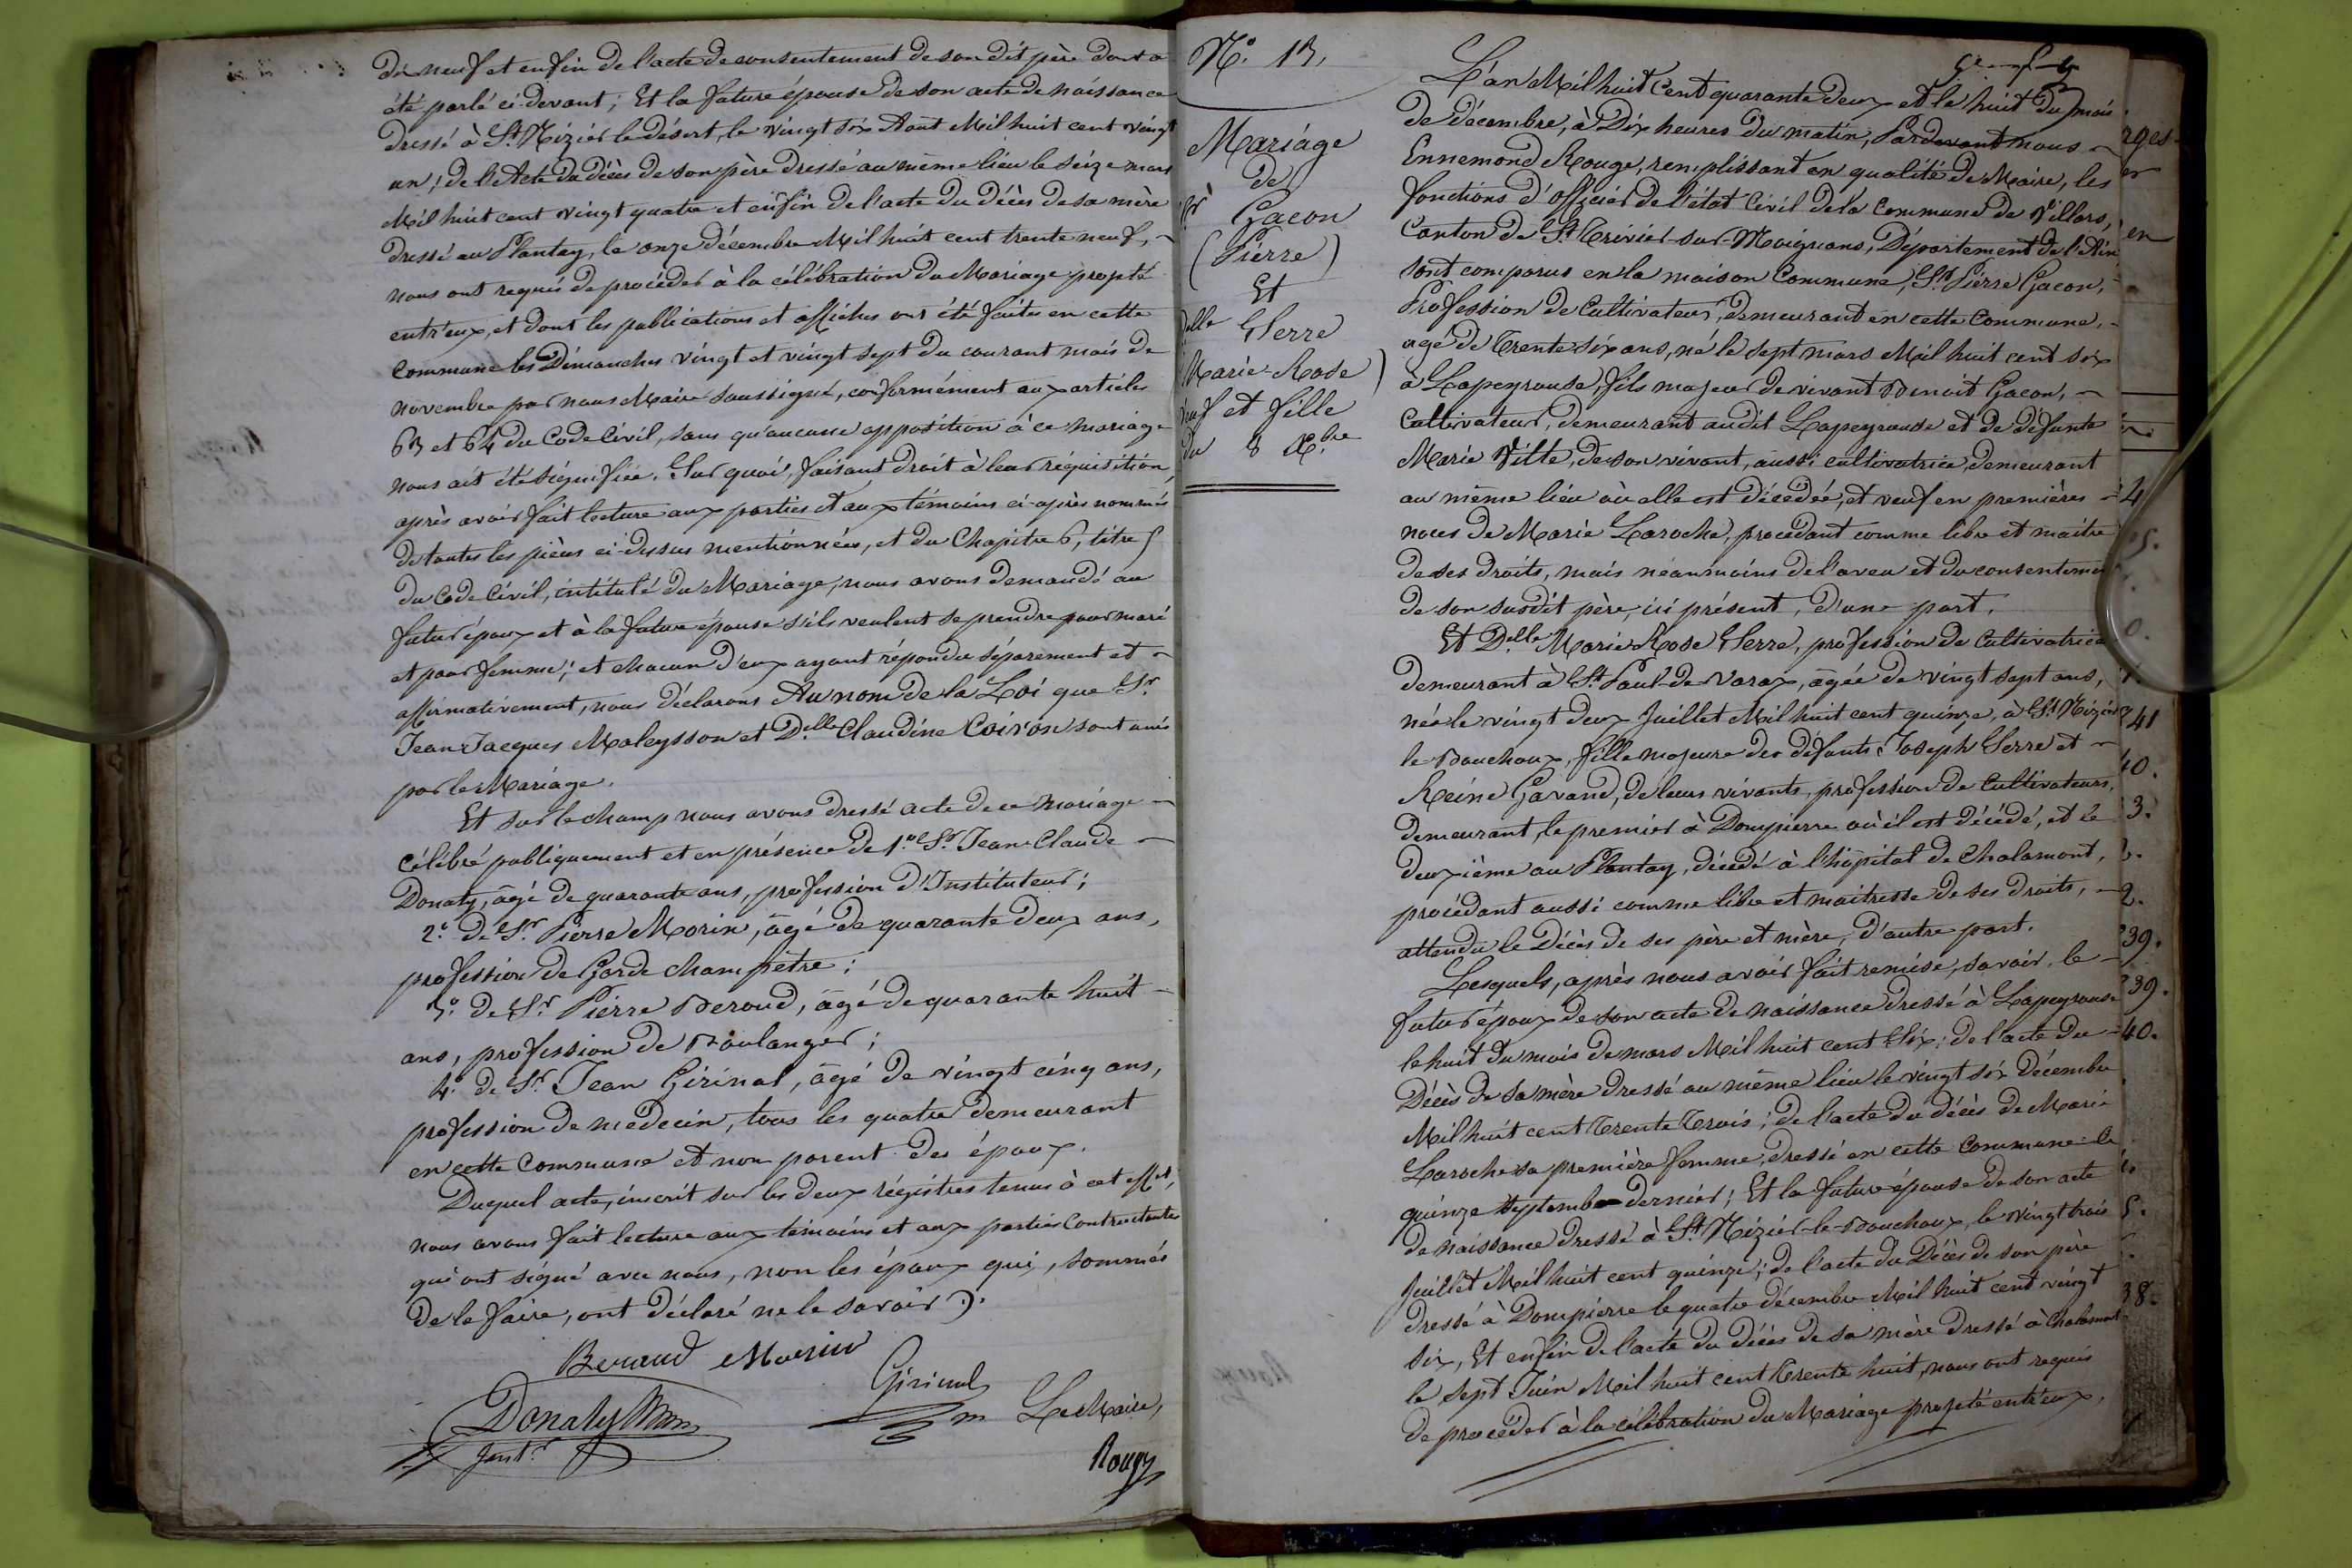 dix neuf et enfin de l'acte de consentement de son dit père dont a
été parlé ci-devant; Et la future épouse de son acte de naissance
dressé à St Nizier le désert, le vingt six Août Mil huit cent vingt
un; de l'Acte du décès de son père dressé au même lieu le seize mars
Mil huit cent vingt quatre et enfin de l'acte du décès de sa mère
dressé au Plantay, le onze décembre Mil huit cent trente neuf,
nous ont requis de procéder à la célébration du Mariage projeté
entr'eux, et dont les publications et affiches ont été faites en cette
Commune les Dimanches vingt et vingt sept du courant mois de
novembre par nous Maire soussigné, conformément aux articles
63 et 64 du Code Civil, sans qu'aucune opposition à ce mariage
nous ait été signifiée. Sur quoi, faisant droit à leur réquisition,
après avoir fait lecture aux parties et aux témoins ci-après nommés
de toutes les pièces ci-dessus mentionnées, et du Chapitre 6, titre 5
du Code Civil, intitulé du Mariage, nous avons demandé au
futur époux et à la future épouse s'ils veulent se prendre pour mari
et pour femme; et chacun d'eux ayant répondu séparement et
affirmativement, nous déclarons Au nom de la Loi que Sr.
Jean-Jacques Maleysson et Delle Claudine Coiron sont unis
par le Mariage.
Et sur le champ nous avons dressé acte de ce mariage
célébré publiquement et en présence de 1.° Sr. Jean-Claude
Donaty, âgé de quarante ans, profession d'Instituteur;
2.° de Sr. Pierre Morin, âgé de quarante deux ans,
profession de Garde champêtre;
3.° de Sr. Pierre Beroud, âgé de quarante huit
ans, profession de Boulanger;
4.° de Sr. Jean Girinal, âgé de vingt cinq ans,
profession de medecin, tous les quatre demeurant
en cette Commune et non parent des époux.
Duquel acte, inscrit sur les deux régistres tenus à cet effet,
nous avons fait lecture aux témoins et aux parties Contractantes
qui ont signé avec nous, non les époux qui, sommés
de le faire, ont déclaré ne le savoir.
Beroud Morin
Donaty
Girinal
Inst.r
Le Maire,
Rouge
N.° 13.
Mariage
de
Sr Gacon
(Pierre)
Et
Delle Serre
Marie-Rose)
veuf et fille
du 8 Xbre
L'an Mil huit Cent quarante deux et le huit du mois
de décembre, à Dix heures du matin, Pardevant nous
Ennemond Rouge, remplissant en qualité de Maire, les
fonctions d'officier de l'état Civil de la Commune de Villars,
Canton de St Trivier-sur-Moignans, Département de l'Ain
sont comparus en la maison Commune, Sr. Pierre Gacon,
Profession de Cultivateur, demeurant en cette Commune,
agé de Trente six ans, né le sept mars Mil huit cent six
à Lapeyrouse, fils majeur de vivant Benoit Gacon,
Cultivateur, demeurant audit Lapeyrouse et de défunte
Marie Ville, de son vivant, aussi cultivatrice, demeurant
au même lieu où elle est décédée, et veuf en premières
noces de Marie Laroche, procédant comme libre et maitre
de ses droits, mais néanmoins de l'aveu et du consentement
de son susdit père, ici présent, d'une part.
Et Delle Marie Rose Serre, profession de Cultivatrice
demeurant à St. Paul-de-Varax, âgée de vingt sept ans,
née le vingt deux Juillet Mil huit cent quinze, à St Nizier
le-Bouchoux, fille majeure des défunts Joseph Serre et
Reine Gavand, de leurs vivants, profession de Cultivateurs,
demeurant, le premier à Dompierre où il est décédé, et la
deuxième au Plantay, décédé à l'hôpital de Chalamont,
procédant aussi comme libre et maitresse de ses droits,
attendu le Décès de ses père et mère, d'autre part.
Lesquels, après nous avoir fait remise, savoir, le
futur époux de son acte de naissance dressé à Lapeyrouse
le huit du mois de mars Mil huit cent Six; de l'acte du
Décès de sa mère dressé au même lieu le vingt six décembre
Mil huit cent Trente Trois; de l'acte du décès de Marie
Laroche sa première femme, dressé en cette Commune le
quinze septembre dernier; Et la future épouse de son acte
de naissance dressé à St. Nizier-le-Bouchoux, le vingt trois
Juillet Mil huit cent quinze; de l'acte du Décès de son père
dressé à Dompierre le quatre décembre Mil huit cent vingt
six, Et enfin de l'acte du décès de sa mère dressé à Chalamont
le sept Juin Mil huit cent Trente huit, nous ont requis
de procéder à la célébration du Mariage projeté entr'eux,